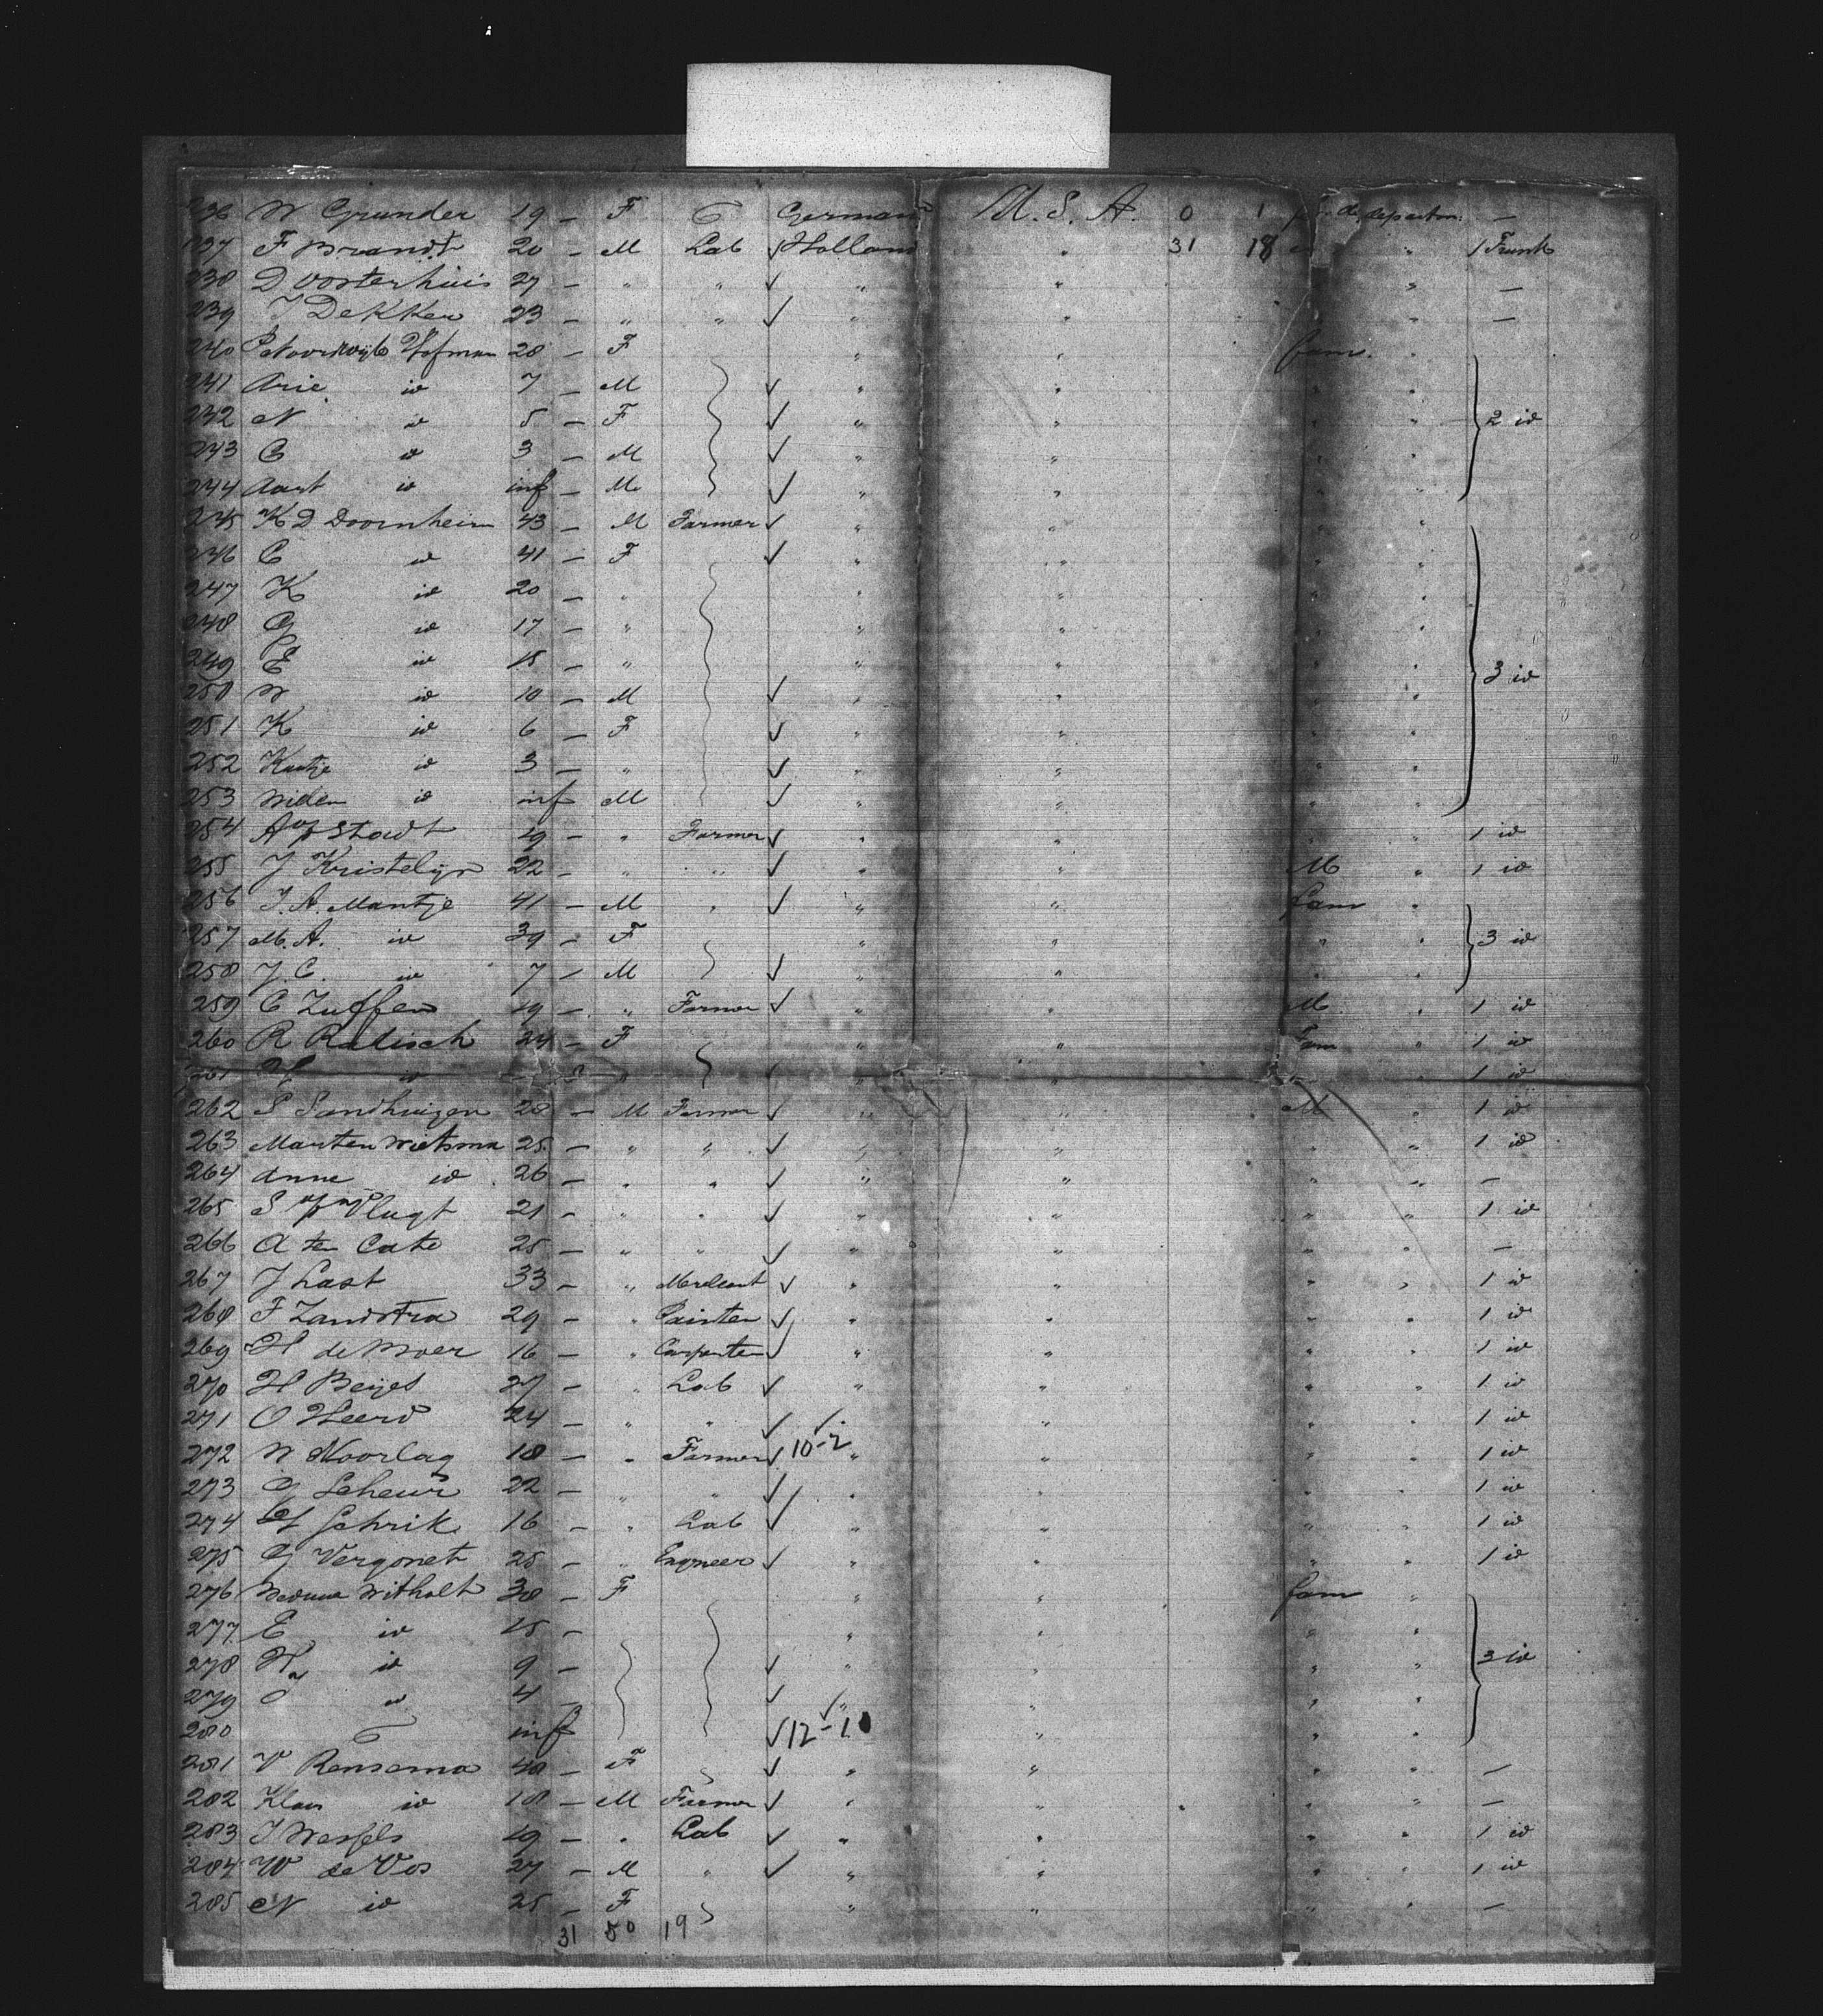 236 W Grunder 19 — F German U. S. A. 0 1 —
237 F Brandt 20 — M Lab ✓ Holland " 31 18 " 1 Trunk
238 D Oosterhuis 27 — " " ✓ " " " —
239 J Dekker 23 — " " ✓ " " " —
240 P Noordwijk Hofman 28 — F " " fam. "
241 Arie id 7 — M ✓ " " " "
242 N id 5 — F ✓ " " " " 2 id
243 C id 3 — M ✓ " " " "
244 Aart id inf — M ✓ " " " "
245 K D Doornheim 43 — M Farmer ✓ " " "
246 C id 41 — F ✓ " " " "
247 K id 20 — " " " " "
248 G id 17 — " " " " "
249 E id 15 — " " " " " 3 id
250 W id 10 — M ✓ " " " "
251 K id 6 — F ✓ " " " "
252 Kaatje id 3 — " ✓ " " " "
253 Willem id inf M ✓ " " " "
254 A v/d Stadt 19 — " Farmer ✓ " " " " 1 id
255 J Kristelijn 22 — " " ✓ " " M " 1 id
256 J. A. Mantje 41 — M " ✓ " " fam "
257 M. A. id 39 — F " " " " 3 id
258 J. C. id 7 — M ✓ " " " "
259 C Zuffen 19 — " Farmer ✓ " " M " 1 id
260 R Radisch 24 — F " " Fam " 1 id
261 id " " 1 id
262 S Sandhuizen 28 — M Farmer ✓ " " M " 1 id
263 Marten Wietsma 25 — " " ✓ " " " " 1 id
264 Anne id 26 — " " ✓ " " " " —
265 S v/d Vlugt 21 — " " ✓ " " " " 1 id
266 A ten Cate 25 — " " ✓ " " " " —
267 J Last 33 — " Merchant ✓ " " " " 1 id
268 F Zandstra 29 — " Painter ✓ " " " " 1 id
269 H de Moer 16 — " Carpenter ✓ " " " " 1 id
270 H Beijes 27 — " Lab ✓ " " " " 1 id
271 O Heerd 24 — " " ✓ ✓ " " " " 1 id
272 W Noorlag 18 — " Farmer ✓ 10-2 " " " " 1 id
273 G Scheur 22 — " " ✓ " " " " 1 id
274 H Schrik 16 — " Lab ✓ " " " " 1 id
275 G Vergonet 25 — " Engineer ✓ " " " " 1 id
276 Weduwe Witholt 38 — F " " fam "
277 E id 15 — " " " "
278 H id 9 — ✓ " " " " 3 id
279 id 4 — ✓ ✓ " " " "
280 inf ✓ 12-1 " " "
281 V Rensema 48 — F ✓ " " " " —
282 Klaas id 18 — M Farmer ✓ " " " " —
283 J Wessels 19 — " Lab ✓ " " " " 1 id
284 W de Vos 27 — M " ✓ " " " " 1 id
285 N id 25 — F " " " " —
31 50 19